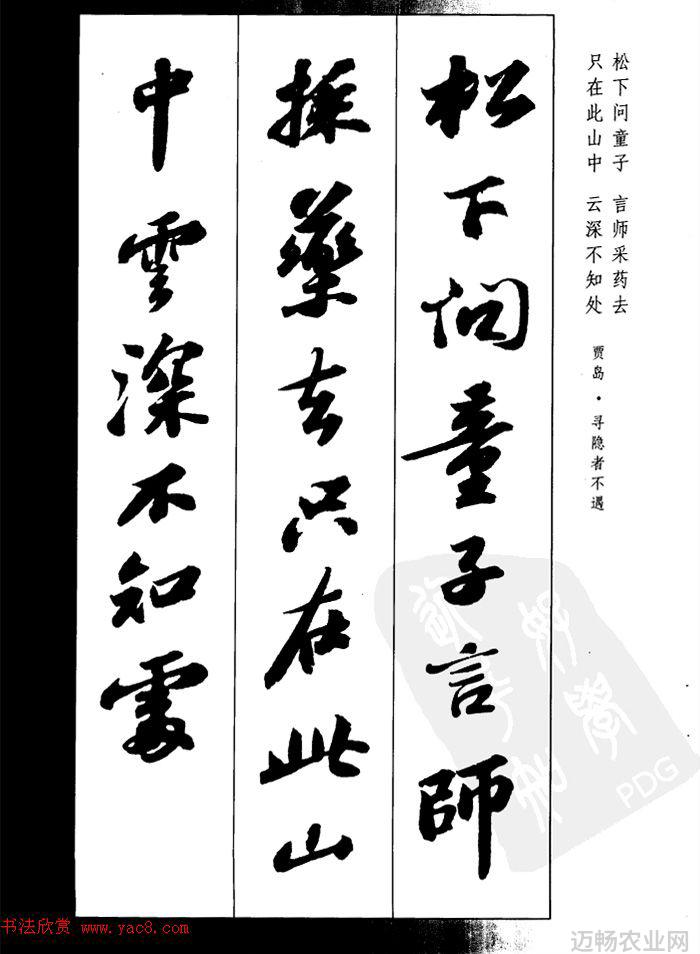 松下问童子 言师采药去
只在此山中 云深不知处
贾岛·寻隐者不遇
松下问童子言師
採藥去只在此山
中雲深不知處
PDG
书法欣赏 www.yac8.com
迈畅农业网